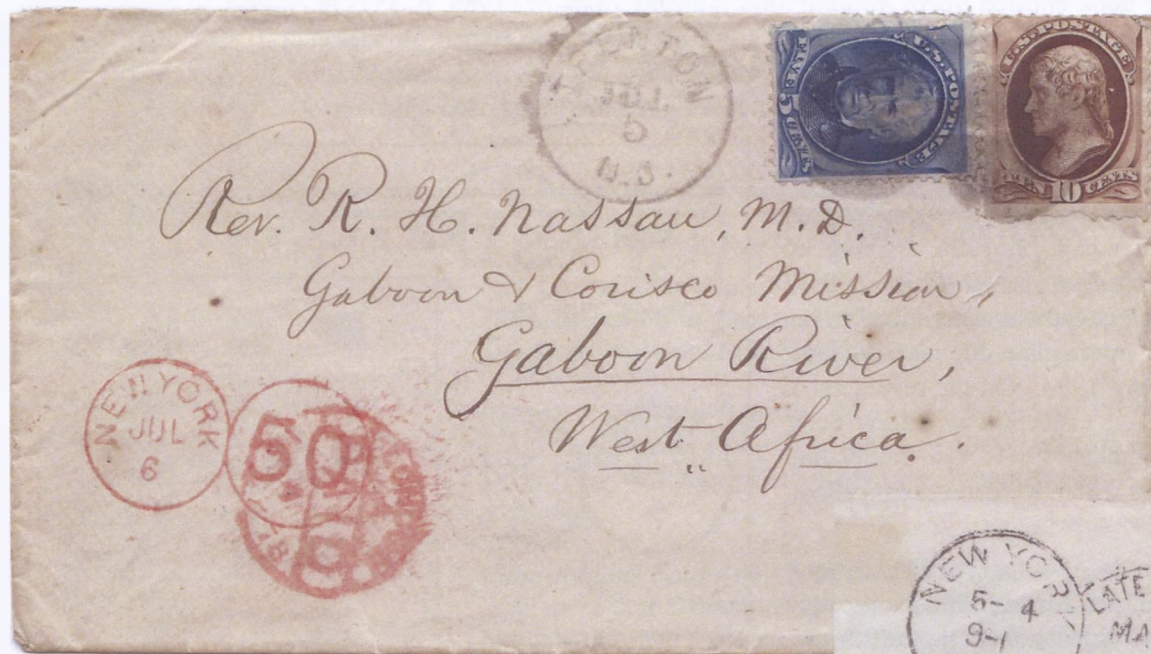 TRENTON
JUL
5
N.J.
U.S. POSTAGE
FIVE 5 CENTS
U.S. POSTAGE
TEN 10 CENTS
Rev. R. H. Nassau, M.D.
Gaboon & Corisco Mission,
Gaboon River,
West Africa.
NEW YORK
JUL
6
50
NEW YORK
5- 4
9-1
LATE
MA